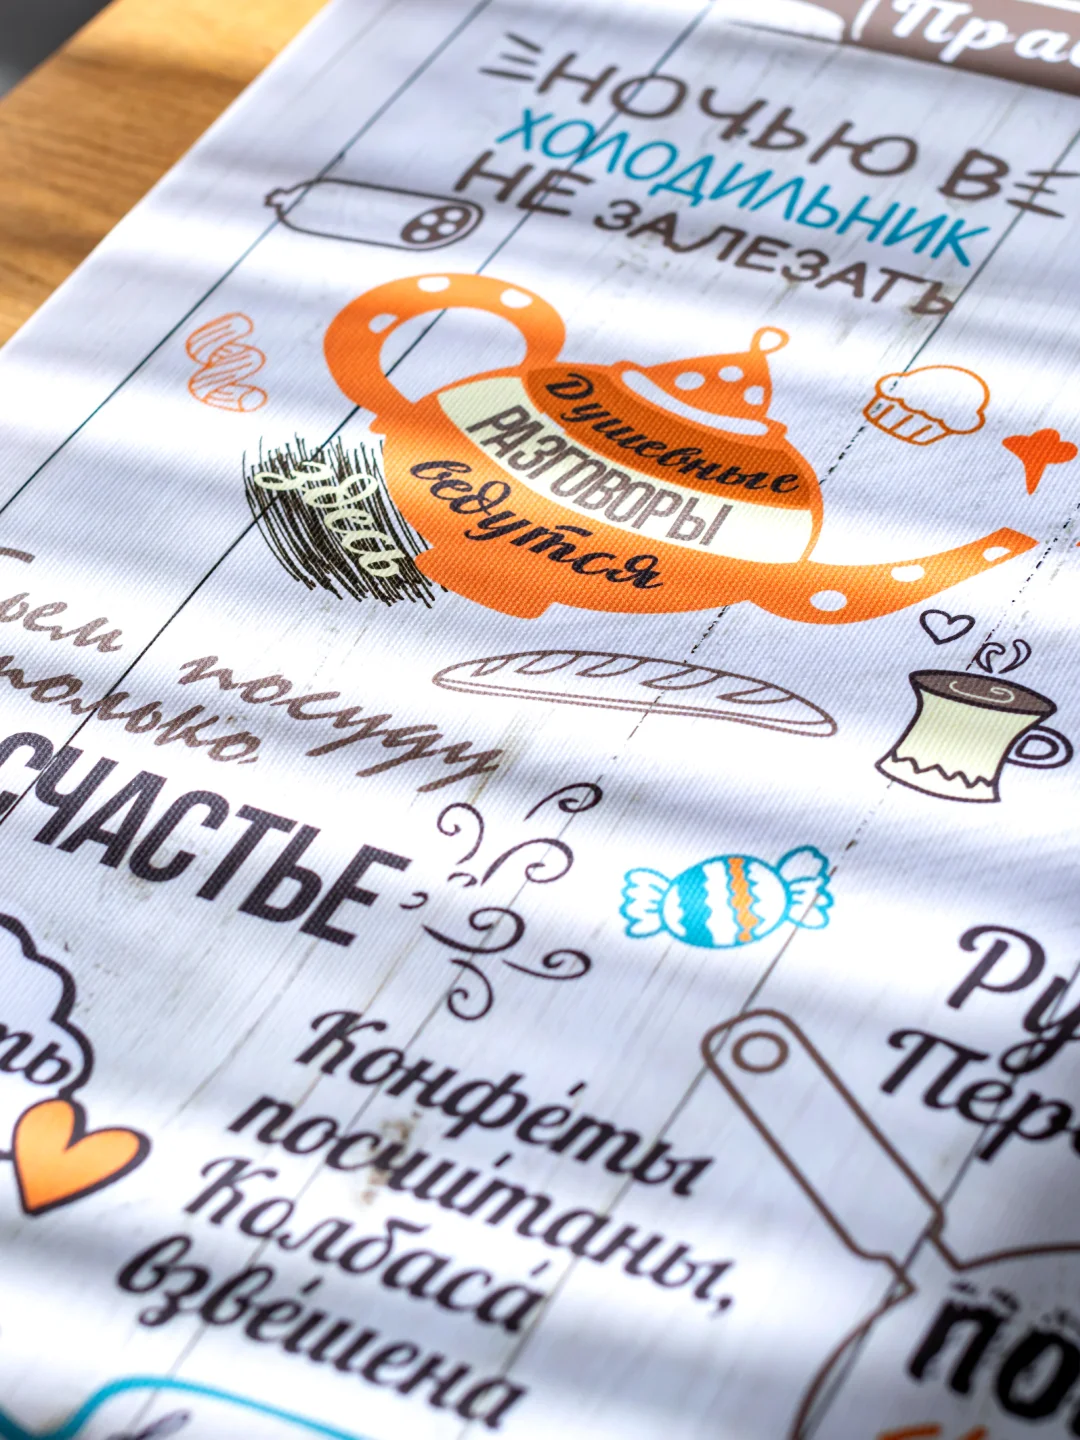 НОЧЬЮ В
ХОЛОДИЛЬНИК
НЕ ЗАЛЕЗАТЬ
Душевные
РАЗГОВОРЫ
ведутся
здесь
посуду
только,
СЧАСТЬЕ
Конфе́ты
посчи́таны,
Колбаса́
взве́шена